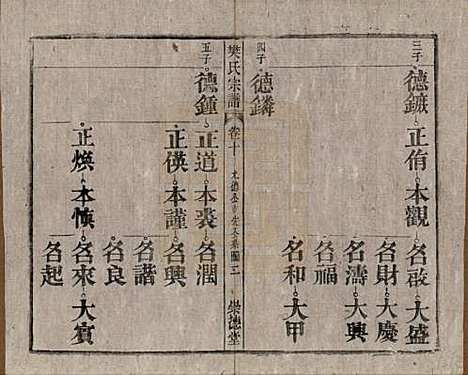 三子 德鏃 正侑 本觀 名啟 大盛
名財 大慶
名濤 大興
名福
名和 大甲
四子 德鏻
樊氏宗譜 卷十 崇德堂
五子 德鍾 正道 本裘 名潤
正偀 本謹 名興
名譜
名良
正煥 本慎 名來 大賓
名起